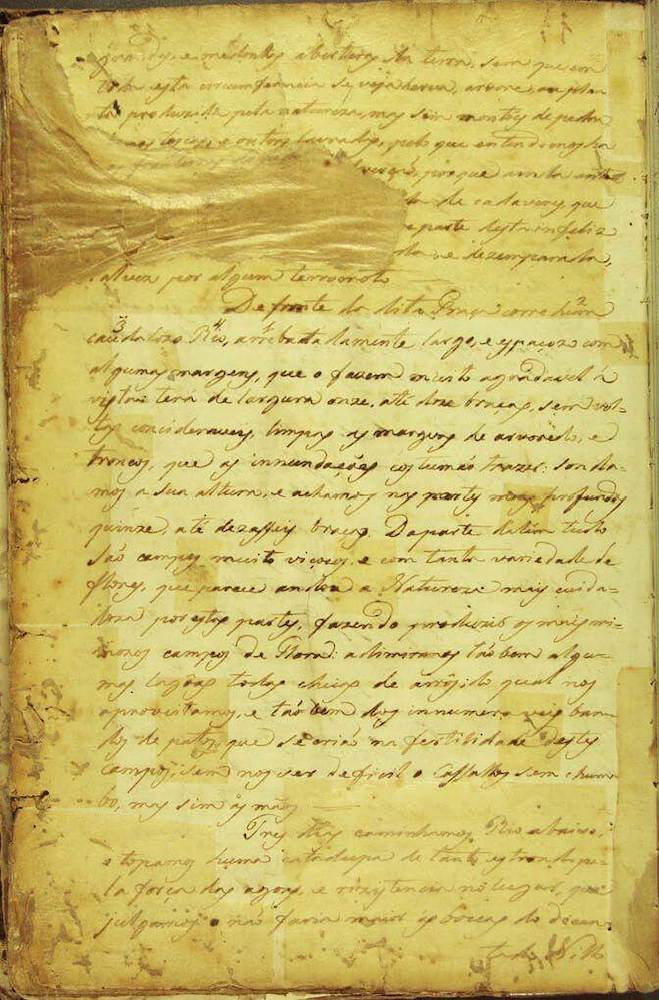 grandes, e medonhas aberturas da terra, sem que em
toda esta circumferencia se veja herva, arvore, ou plan
ta produzida pela natureza, mas sim montões de pedra
humas toscas, e outras lavradas, pelo que entendemos ha
verção, porque ainda entre
da de cadaveres que
e parte desta infeliz
da, e dezemparada,
talvez por algum terremoto
Defronte da dita Praça corre hum 2
3 caudalozo Rio 4, 1 arrebatadamente largo, e espaçozo com
algumas margens, que o fazem muito agradavel á
vista: terá de largura onze, até doze braças, sem vol-
tas concideraveis, limpas as margens de arvoredo, e
troncos, que as innundações costumão trazer: sonda-
mos a sua altura, e achamos nas partes mais profundas
quinze, até dezasseis braças. Daparte dalém tudo
são campos muito viçosos, e com tanta variedade de
flores, que parece andou a Natureza mais cuida-
doza por estas partes, fazendo produzir os mais mi-
mozos campos de Flora: admiramos tão bem algu-
mas lagoas todas cheias de arrôz: do qual nos
aproveitamos, e tão bem dos innumeraveis ban-
dos de patos, que se crião na fertilidade destes
campos, sem nos ser deficil o cassallos sem chum-
bo, mas sim ás mãos
Tres dias caminhamos Rio abaixo,
e topamos huma catadupa de tanto estrondo pe-
la força das agoas, e rezistencia no lugar, que
julgamos o não faria maior as bocas do decan-
tado Nillo